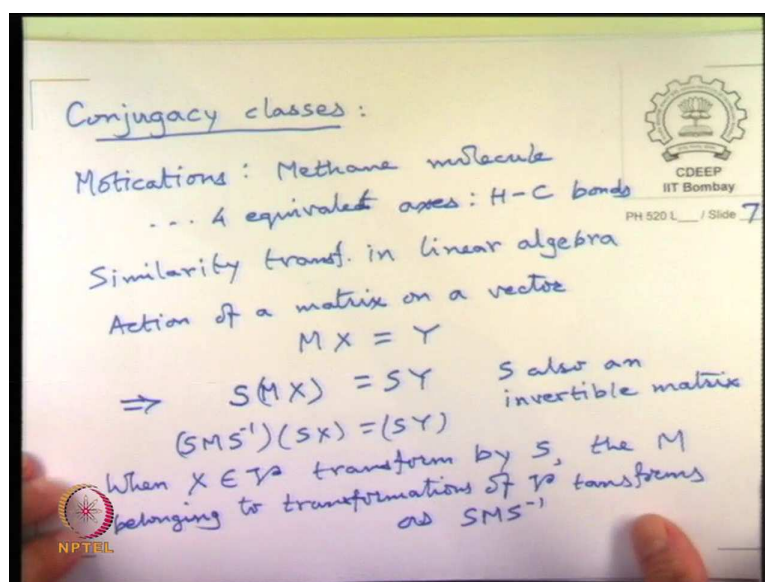 Conjugacy classes :
CDEEP
IIT Bombay
PH 520 L___ / Slide 7
Motications : Methane molecule
... 4 equivalet axes : H-C bonds
Similarity transf. in linear algebra
Action of a matrix on a vector
M X = Y
⇒ S(MX) = SY S also an
invertible matrix
(SMS⁻¹)(SX) = (SY)
When X ∈ 𝒱 transform by S, the M
belonging to transformations of 𝒱 tansforms
as SMS⁻¹
NPTEL